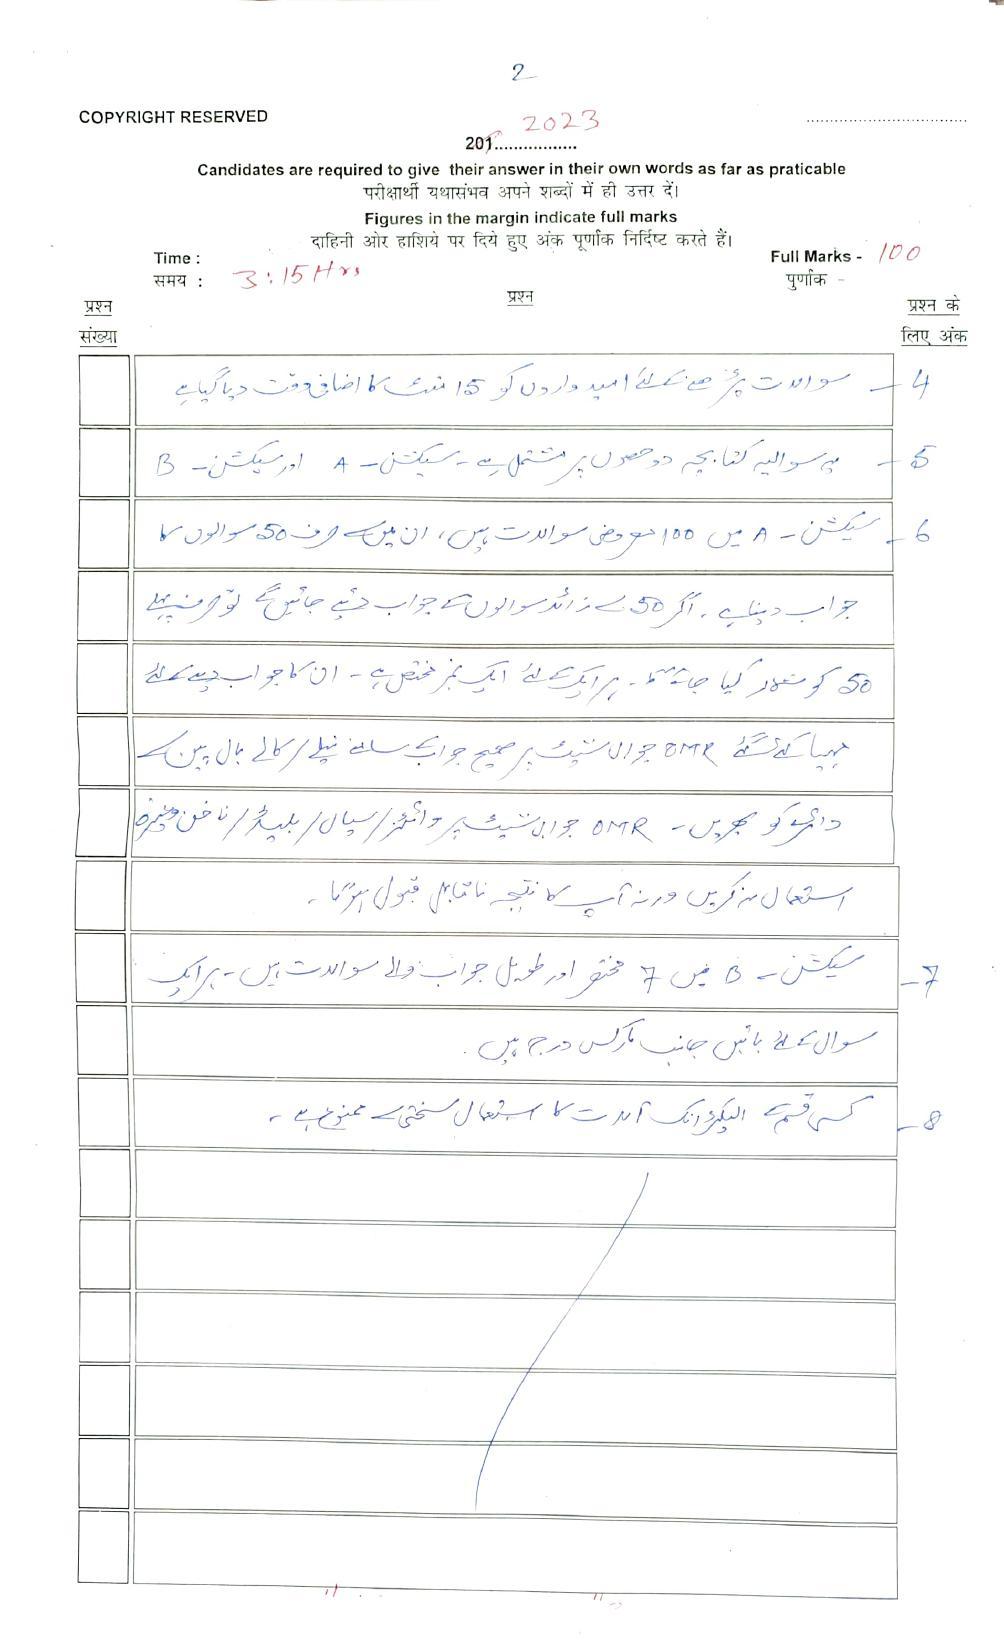 2
COPYRIGHT RESERVED
2023
201.................
Candidates are required to give their answer in their own words as far as praticable
परीक्षार्थी यथासंभव अपने शब्दों में ही उत्तर दें।
Figures in the margin indicate full marks
दाहिनी ओर हाशिये पर दिये हुए अंक पूर्णांक निर्दिष्ट करते हैं।
Time : Full Marks - 100
समय : 3:15 Hrs पुर्णांक -
प्रश्न प्रश्न प्रश्न के
संख्या लिए अंक
4 - سوالات پڑھنے کے لئے امیدواروں کو 15 منٹ کا اضافی وقت دیا گیا ہے
5 - یہ سوالیہ کتابچہ دو حصوں پر مشتمل ہے - سیکشن - A اور سیکشن - B
6 - سیکشن - A میں 100 معروضی سوالات ہیں، ان میں سے صرف 50 سوالوں کا
جواب دینا ہے . اگر 50 سے زائد سوالوں کے جواب دئیے جائیں گے تو صرف پہلے
50 کو شمار کیا جائے گا - ہر ایک کے لئے ایک نمبر مختص ہے - ان کا جواب دینے کے لئے
مہیا کئے گئے OMR جوابی شیٹ پر صحیح جواب کے سامنے نیلے / کالے بال پین سے
دائرے کو بھریں - OMR جوابی شیٹ پر وائٹنر / سیال / بلیڈ / ناخن وغیرہ
استعمال نہ کریں ورنہ آپ کا نتیجہ ناقابل قبول ہوگا -
7 - سیکشن - B میں 7 مختصر اور طویل جواب والے سوالات ہیں - ہر ایک
سوال کے لئے بائیں جانب مارکس درج ہیں .
8 - کسی قسم کے الیکٹرانک آلات کا استعمال سختی سے ممنوع ہے -